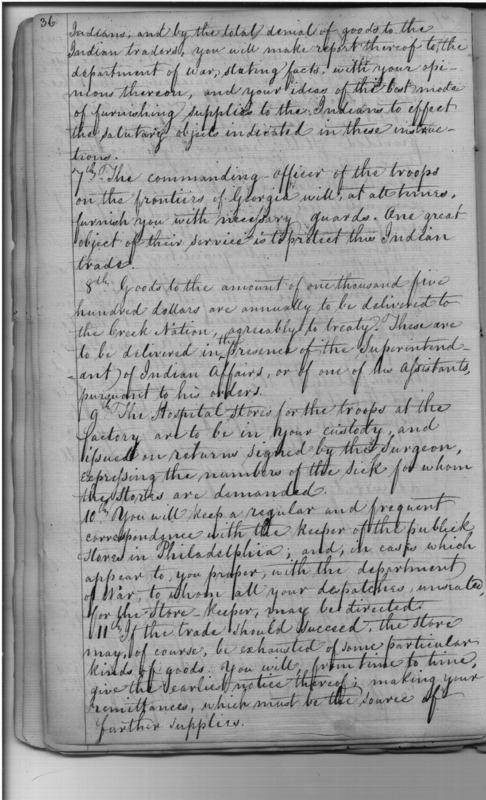 36
Indians, and by the total denial of goods to the
Indian traders, you will make report thereof to the
department of war, stating facts, with your opi-
nions thereon, and your ideas of the best mode
of furnishing supplies to the Indians to effect
the salutary objects indicated in these instruc-
tions.
7th The commanding officer of the troops
on the frontiers of Georgia will, at all times,
furnish you with necessary guards. One great
object of their service is to protect this Indian
trade.
8th Goods to the amount of one thousand five
hundred dollars are annually to be delivered to
the Creek Nation, agreeably to treaty. These are
to be delivered in the presence of the Superintend-
ant of Indian Affairs, or of one of his Assistants,
pursuant to his orders.
9th The Hospital stores for the troops at the
factory are to be in your custody, and
issued on returns signed by the Surgeon,
expressing the numbers of the sick for whom
the stores are demanded.
10th You will keep a regular and frequent
correspondence with the keeper of the publick
stores in Philadelphia; and, in cases which
appear to you proper, with the department
of War, to whom all your despatches, unsealed,
for the Store Keeper, may be directed.
11th If the trade should succeed, the store
may, of course, be exhausted of some particular
kinds of goods. You will, from time to time,
give the earliest notice thereof; making your
remittances, which must be the source of
further supplies.